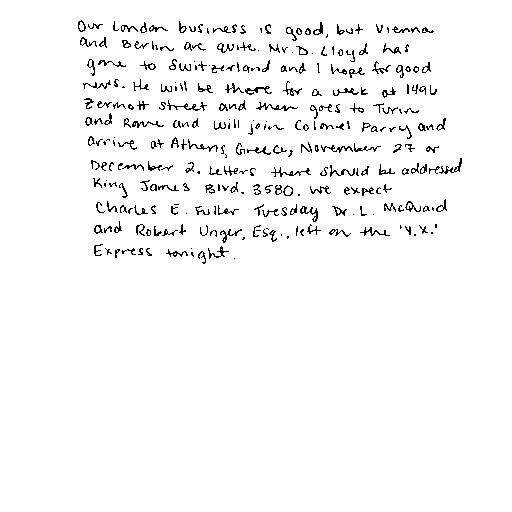 Our London business is good, but Vienna
and Berlin are quite. Mr. D. Lloyd has
gone to Switzerland and I hope for good
news. He will be there for a week at 1496
Zermott Street and then goes to Turin
and Rome and will join Colonel Parry and
arrive at Athens, Greece, November 27 or
December 2. Letters there should be addressed
King James Blvd. 3580. We expect
Charles E. Fuller Tuesday Dr. L. McQuaid
and Robert Unger, Esq., left on the 'Y.X.'
Express tonight.